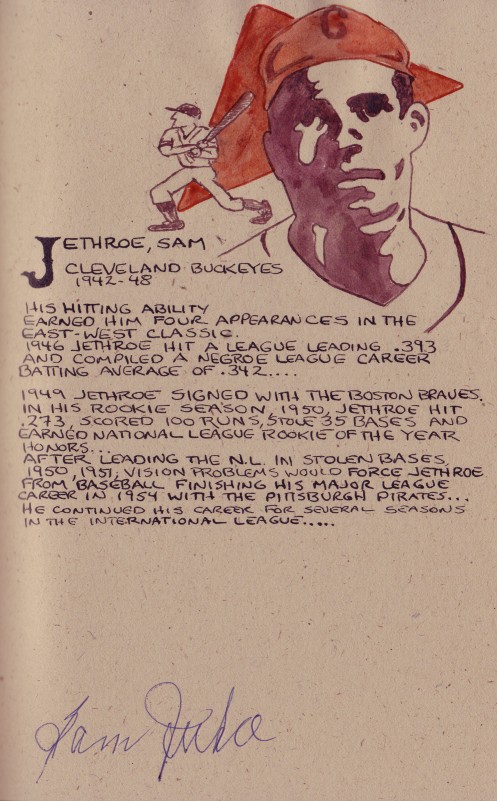 C
JETHROE, SAM
CLEVELAND BUCKEYES
1942-48
HIS HITTING ABILITY
EARNED HIM FOUR APPEARANCES IN THE
EAST-WEST CLASSIC.
1946 JETHROE HIT A LEAGUE LEADING .393
AND COMPILED A NEGROE LEAGUE CAREER
BATTING AVERAGE OF .342....
1949 JETHROE SIGNED WITH THE BOSTON BRAVES.
IN HIS ROOKIE SEASON, 1950, JETHROE HIT
.273, SCORED 100 RUNS, STOLE 35 BASES AND
EARNED NATIONAL LEAGUE ROOKIE OF THE YEAR
HONORS...
AFTER LEADING THE N.L. IN STOLEN BASES
1950, 1951, VISION PROBLEMS WOULD FORCE JETHROE
FROM BASEBALL FINISHING HIS MAJOR LEAGUE
CAREER IN 1954 WITH THE PITTSBURGH PIRATES...
HE CONTINUED HIS CAREER FOR SEVERAL SEASONS
IN THE INTERNATIONAL LEAGUE.....
Sam Jethroe